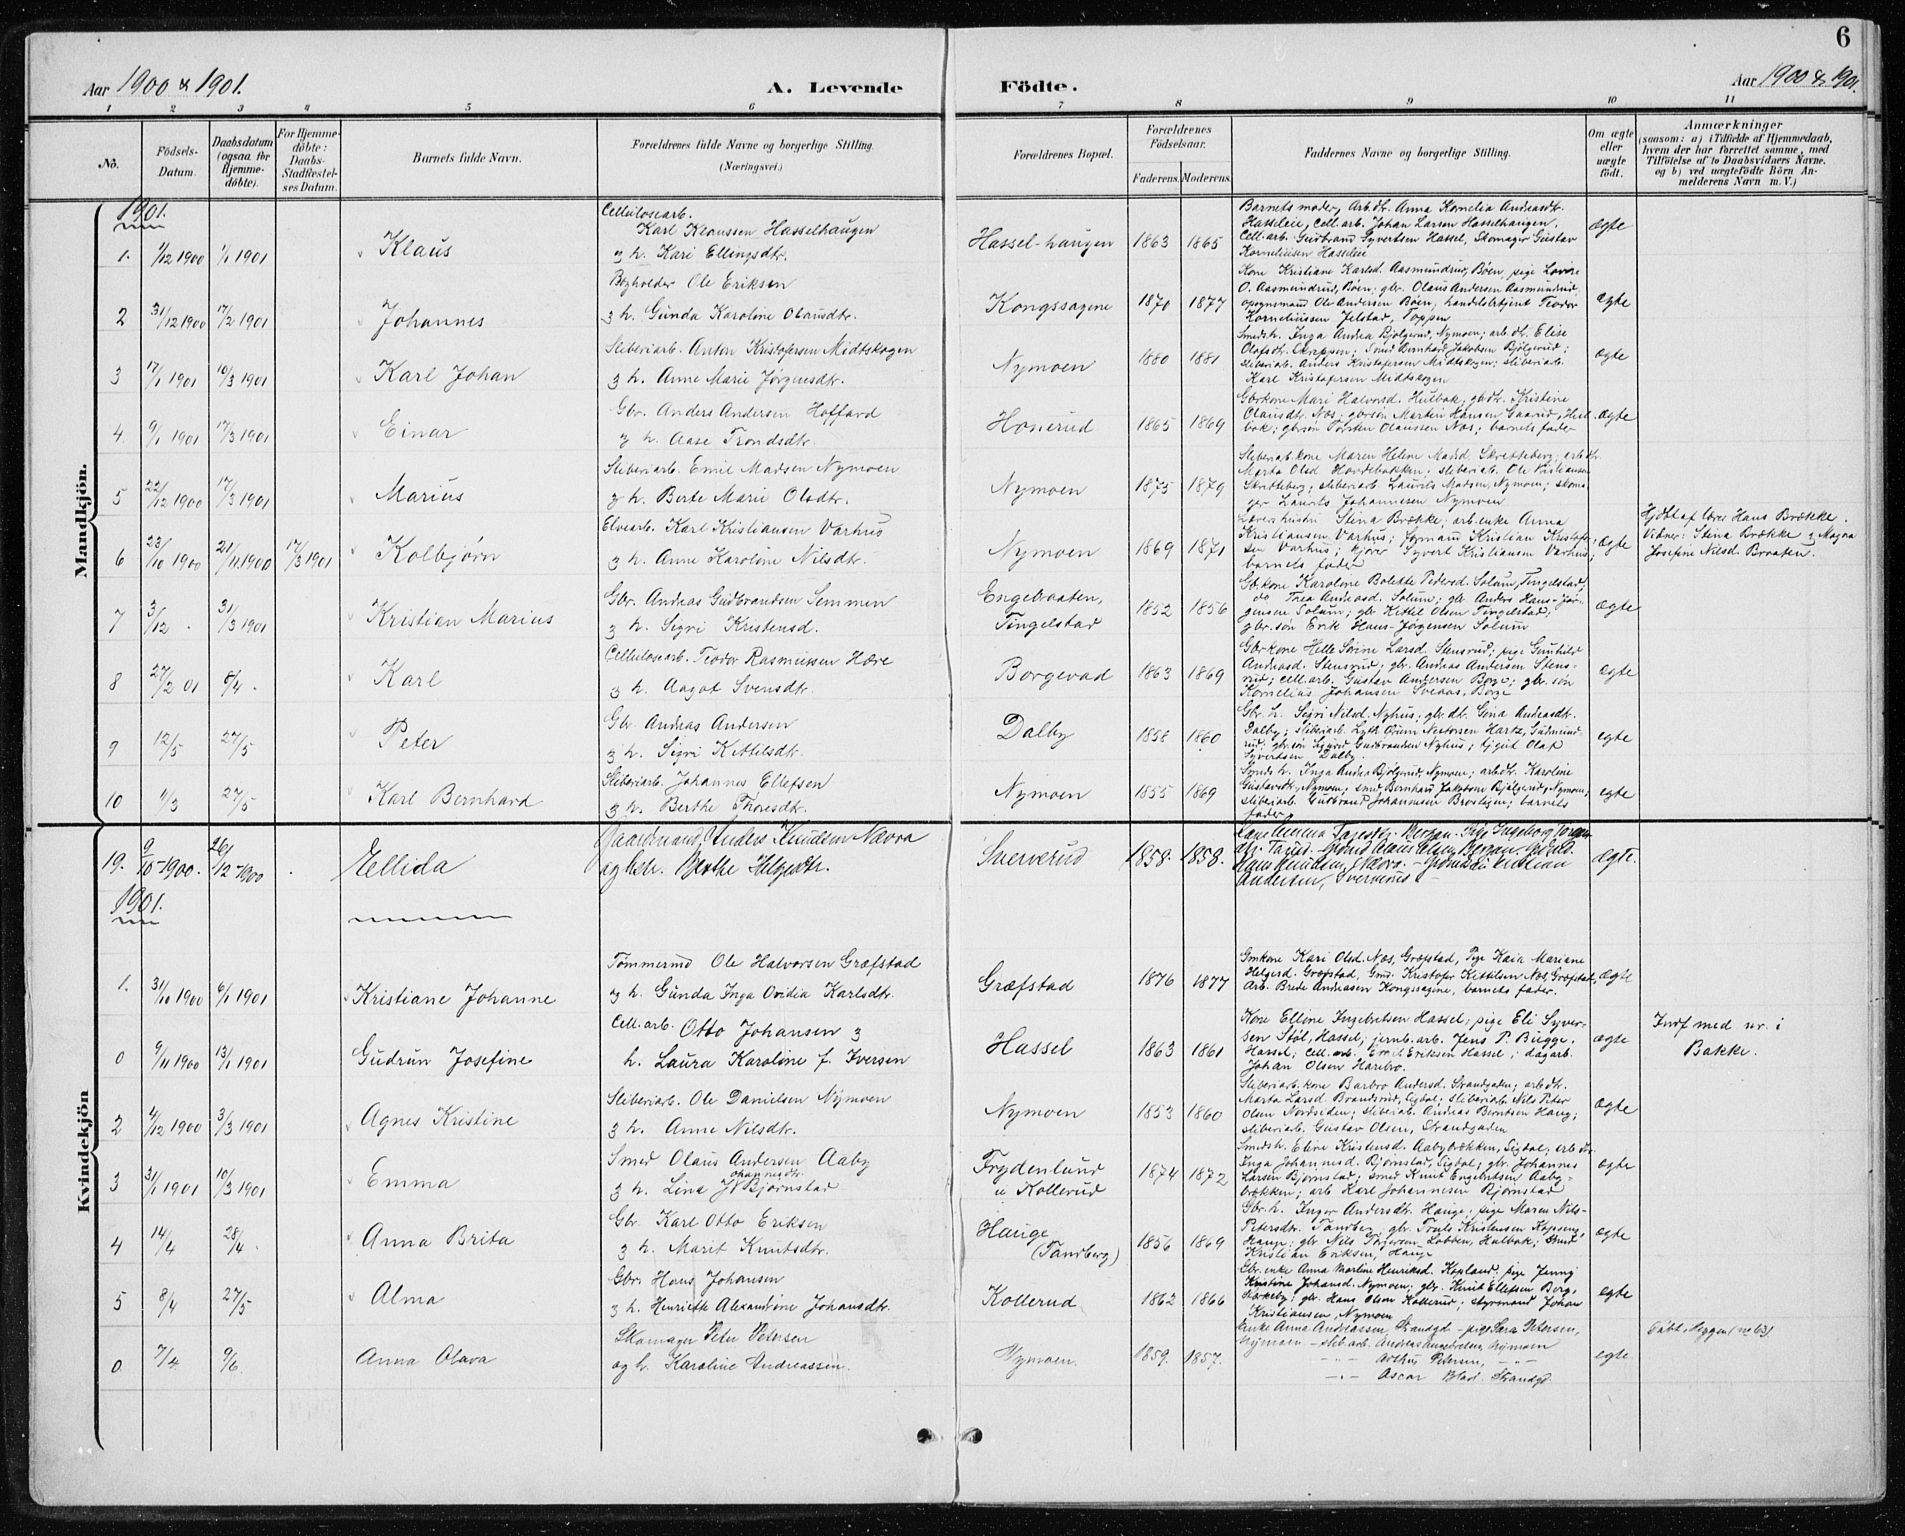 6
Aar 1900 & 1901.
A. Levende Födte.
Aar 1900 & 1901.
1 2 3 4 5 6 7 8 9 10 11
Nö.
Födsels-Datum.
Daabsdatum (ogsaa for Hjemmedöbte).
For Hjemmedöbte: Daabs-Stadfæstelses Datum.
Barnets fulde Navn.
Forældrenes fulde Navne og borgerlige Stilling. (Næringsvei.)
Forældrenes Bopæl.
Forældrenes Födselsaar.
Faderens. Moderens.
Faddernes Navne og borgerlige Stilling.
Om ægte eller uægte födt.
Anmærkninger
(saasom: a) i Tilfælde af Hjemmedaab, hvem der har forrettet samme, med Tilföielse af to Daabsvidners Navne, og b) ved uægtefödte Börn Anmelderens Navn m. V.)
Mandkjön.
1901.
1. 1/12 1900 1/1 1901 Klaus
Cellulosearb. Karl Klaussen Hasselhaugen
og h. Kari Ellingsdtr.
Hassel-haugen 1863 1865
Barnets moder, Arb.dt. Anna Kornelia Andreasdt.
Hasseleie, Cell.arb. Johan Larsen Hasselhaugen,
Cell.arb. Gudbrand Syvertsen Hassel, Skomager Gustav
Korneliusen Hasseleie
ægte
2 31/12 1900 17/2 1901 Johannes
Bogholder Ole Eriksen
3 h. Gunda Karoline Olausdtr.
Kongssagene 1870 1877
Kone Kristiane Karlsd. Aasmundrud, Böen, pige Lovise
O. Aasmundrud, Böen; gbr. Olaus Andersen Aasmundrud,
opsynsmand Ole Andersen Böen, handelsbetjent Teodor
Korneliussen Jelstad, Toppen
ægte
3 17/1 1901 10/3 1901 Karl Johan
Sliberiarb. Anton Kristofersen Midtskogen
3 h. Anne Marie Jørgensdtr.
Nymoen 1880 1881
Smedsh. Inga Andrea Bjölgerud, Nymoen; arb.dt. Elise
Olafsdtr. ; Smed Bernhard Jakobsen Bjölgerud;
sliberiarb. Anders Kristofersen Midtskogen; sliberiarb.
Karl Kristofersen Midtskogen
ægte
4 9/1 1901 17/3 1901 Einar
Gbr. Anders Andersen Hoffard
og h. Aase Trondsdtr.
Honerud 1865 1869
Gbrkone Mari Halvorsd. Hulbak; gb.dt. Kristine
Olausdtr. Næs; gbrsøn Martin Hansen Gaarud, Hulbak;
gbrsøn Torsten Olaussen Næs; barnets fader
ægte
5 22/12 1900 17/3 1901 Marius
Sliberiarb. Emil Madsen Nymoen
3 h. Berte Marie Olsdtr.
Nymoen 1875 1879
Sliberiarb.kone Maren Helene Madsd. Skretteberg; arb.dtr.
Marta Olsd. Hovdebakken; sliberiarb. Ole Kristiansen
Skretteberg; sliberiarb. Laurits Madsen, Nymoen; skomager
Laurits Johannesen Nymoen
6 23/10 1900 21/11 1900 17/3 1901 Kolbjørn
Elvearb. Karl Kristiansen Varhus
3 h. Anne Karoline Nilsdtr.
Nymoen 1869 1871
Lærers hustru Stina Brække; arb.enke Anna
Kristiansen Varhus; Kristian Kristofersen
Varhus; kjører Syvert Kristiansen Varhus;
barnets fader
ægte
Hjdbt af lærer Hans Brække.
Vidner: Stina Brække 3 Magna
Josefine Nilsd. Braaten.
7 3/12 . 31/3 1901 Kristian Marius
Gbr. Andreas Gudbrandsen Semmen
3 h. Sigri Kristensd.
Engebraaten, Tingelstad 1852 1856
Gb.kone Karoline Bolette Pedersd. Solum, Tingelstad,
do Thea Andreasd. Solum; gbr. Anders Hans-Jørgensen
Solum; gbr Kittil Olsen Tingelstad;
gbr.søn Erik Hans-Jørgensen Solum
ægte
8 27/2 01 8/4 . Karl
Cellulosearb. Teodor Rasmussen Hære
3 h. Aagot Svensdtr.
Borgevad 1863 1869
Gbrkone Helle Sörine Larsd. Stensrud; pige Gunhild
Andreasd. Stensrud; gbr. Andreas Andersen Stensrud;
cell.arb. Gustav Andersen Borge; gbr. søn
Kornelius Johansen Sveaas, Borge
ægte
9 12/5 27/5 Peter
Gbr. Andreas Andersen
3 h. Sigri Kittilsdtr.
Dalby 1858 1860
Gbr. h. Sigri Nilsd. Nyhus; gbr. dtr. Gina Andreasdt.
Dalby; sliberiarb. Nestorsen Hartz, Gudmundrud;
gbr. søn Sigurd Gudbrandsen Nyhus; Olaf
Syvertsen Dalby.
ægte
10 11/3 27/5 Karl Bernhard
Sliberiarb. Johannes Ellefsen
3 h. Berthe Thoresdtr.
Nymoen 1855 1869
Smeds h. Inga Andrea Bjölgerud, Nymoen; arb.dt. Karoline
Gustavsdt., Nymoen, smed Bernhard Jakobsen Bjölgerud, Nymoen;
sliberiarb. Gudbrand Johannesen ; barnets
fader
ægte
Kvindekjön
19. 9/10-1900. 26/12-1900 . Ellida
Gaardmand, Anders Knudsen Nævra
og hstr. Berthe Helgedtr.
Sververud 1858. 1858.
ægte.
1901.
1. 31/10 1900 6/1 1901 Kristiane Johanne
Tömmermd Ole Halvorsen Græfstad
og h. Gunda Inga Ovidia Karlsdtr.
Græfstad 1876 1877
Gmkone Kari Olsd. Næs, Græfstad, Pige Kaia Mariane
Helgesd. Græfstad, Gmd. Kristofer Kittilsen Næs, Græfstad,
Arb. Brede Andreasen Kongssagene, barnets fader.
ægte
0 9/11 1900 13/1 1901 Gudrun Josefine
Cell.arb. Otto Johansen 3
h. Laura Karoline f. Iversen
Hassel 1863 1861
Kone Elline Ingebretsen Hassel; pige Eli Syversen
Stöl, Hassel; jernb.arb. Jens P. Bugge,
Hassel; Cell.arb. Emil Eriksen Hassel; dagarb.
Johan Olsen Harebro.
ægte
Indf med nr. i
Bakke.
2 4/12 1900 3/3 1901 Agnes Kristine
Sliberiarb. Ole Danielsen Nymoen
3 h. Anne Nilsdtr.
Nymoen 1853 1860
Sliberiarb.kone Barbro Andersd. Strandgaden; arb.dt.
Marta Larsd. Brandsrud, Sigdal; sliberiarb. Nils Peter
Olsen Nordsiden; sliberiarb. Andreas Berntsen Haug;
sliberiarb. Gustav Olsen, Strandgaden
ægte
3 31/1 1901 10/3 1901 Emma
Smed Olaus Andersen Aaby
3 h. Lina Johannesdtr. Bjørnstad
Frydenlund u Kollerud 1874 1872
Smedsh. Eline Kristensd. Aabybrækken, Sigdal; arb.dtr.
Inga Johannesd. Bjørnstad, Sigdal; gbr. Johannes
Larsen Bjørnstad; smed Knut Engebretsen Aabybrækken;
arb Karl Johannesen Bjørnstad
ægte
4 14/4 28/4 . Anna Brita
Gbr. Karl Otto Eriksen
3 h. Marit Knutsdtr.
Hauge (Tandberg) 1856 1869
Gbr.h. Inger Andersdt. Hauge; pige Maren Nils-
Petersdtr. Tandberg; gbr. Truls Kristensen
Hauge; gbr Nils Lobben, Hulbak; smed
Kristian Eriksen, Hauge
ægte
5 8/4 27/5 Alma
Gbr. Hans Johansen
3 h. Henriette Alexandrine Johansdtr.
Kollerud 1862 1866
Gbr. enke Anna Martine Henriksd. Kopland, pige Jenny
Kristine Johansd. Nymoen; gbr. Knut Ellefsen Berg,
; gbr Hans Olson Kollerud; styrmand Johan
Kristiansen, Nymoen
ægte
0 7/4 9/6. Anna Olava
Skomager Peter Petersen
og h. Karoline Andreassen.
Nymoen. 1859. 1857.
Enke Anna Andreassen Strandgd - pige Sara Petersen,
Nymoen - Slib.arb. Andreas Nymoen
-"- Arthur Petersen, -"-
-"- Oscar Strandgd.
ægte